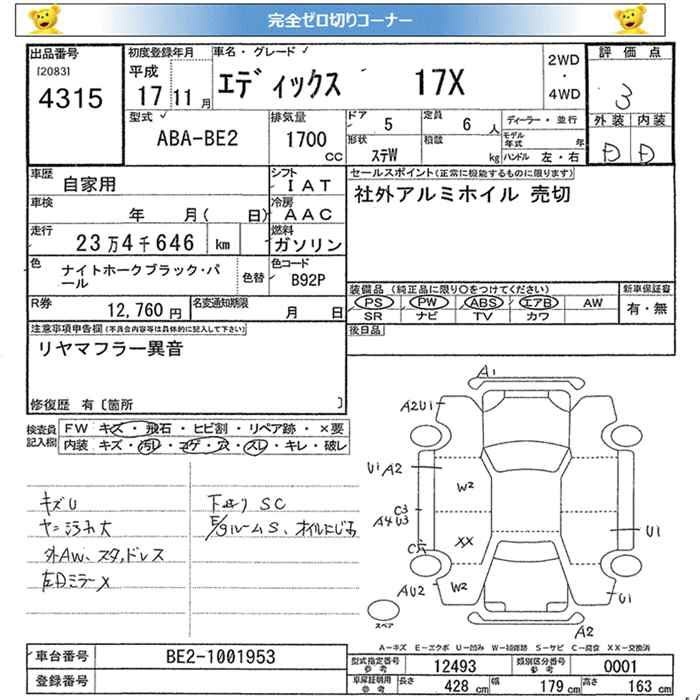 完全ゼロ切りコーナー
出品番号
[2083]
4315
初度登録年月
平成
17 11 月
車名・グレード
エディックス 17X
2WD
・
4WD
評価点
3
外装 内装
D D
型式
ABA-BE2
排気量
1700
cc
ドア 5
定員 6 人
形状 ステW
積載 kg
ディーラー・並行
モデル年式 年
ハンドル 左・右
車歴 自家用
シフト IAT
車検 年 月( 日)
冷房 AAC
走行 23万4千646 km
燃料 ガソリン
色 ナイトホークブラック・パール
色替
色コード B92P
R券 12,760 円
名変通知期限 月 日
セールスポイント(正常に機能するものに限ります)
社外アルミホイル 売切
装備品 (純正品に限り〇をつけてください)
PS PW ABS エアB AW
SR ナビ TV カワ
新車保証書
有・無
後日品
注意事項申告欄(不具合内容等は具体的に記入して下さい)
リヤマフラー異音
修復歴 有〔箇所 〕
検査員記入欄
FW キズ・飛石・ヒビ割・リペア跡・×要
内装 キズ・汚れ・コゲ・穴・スレ・キレ・破レ
キズU
ヤニ汚れ大
外AW、スタッドレス
左Dミラー X
下廻り SC
E/gルームS、オイルにじみ
A1
A2U1
U1 A2
W2
C3
A4 U3
XX
AU2
W2
U1
U1
A2
スペア
A―キズ E―エクボ U―凹み W―補修跡 S―サビ C―腐食 XX―交換済
車台番号 BE2-1001953
登録番号
型式指定番号参考 12493
類別区分番号参考 0001
車庫証明用参考
長さ 428 cm
幅 179 cm
高さ 163 cm